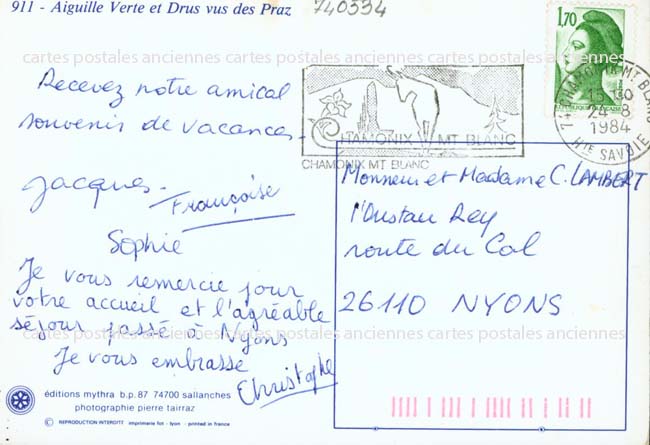 911 - Aiguille Verte et Drus vus des Praz
740334
1,70
cartes postales anciennes cartes postales anciennes cartes postales anciennes
Recevez notre amical
souvenir de vacances.
CHAMONIX MT BLANC
CHAMONIX MT BLANC
74 CHAMONIX MT BLANC
24-8
1984
HTE SAVOIE
Jacques.
Françoise
Sophie
Monsieur et Madame C. LAMBERT
l'Oustau Rey
route du Col
26110 NYONS
Je vous remercie pour
votre accueil et l'agréable
séjour passé à Nyons
cartes postales anciennes cartes postales anciennes cartes postales anciennes
Je vous embrasse
Christophe
éditions mythra b.p. 87 74700 sallanches
photographie pierre tairraz
© REPRODUCTION INTERDIT imprimerie fot - lyon - printed in france